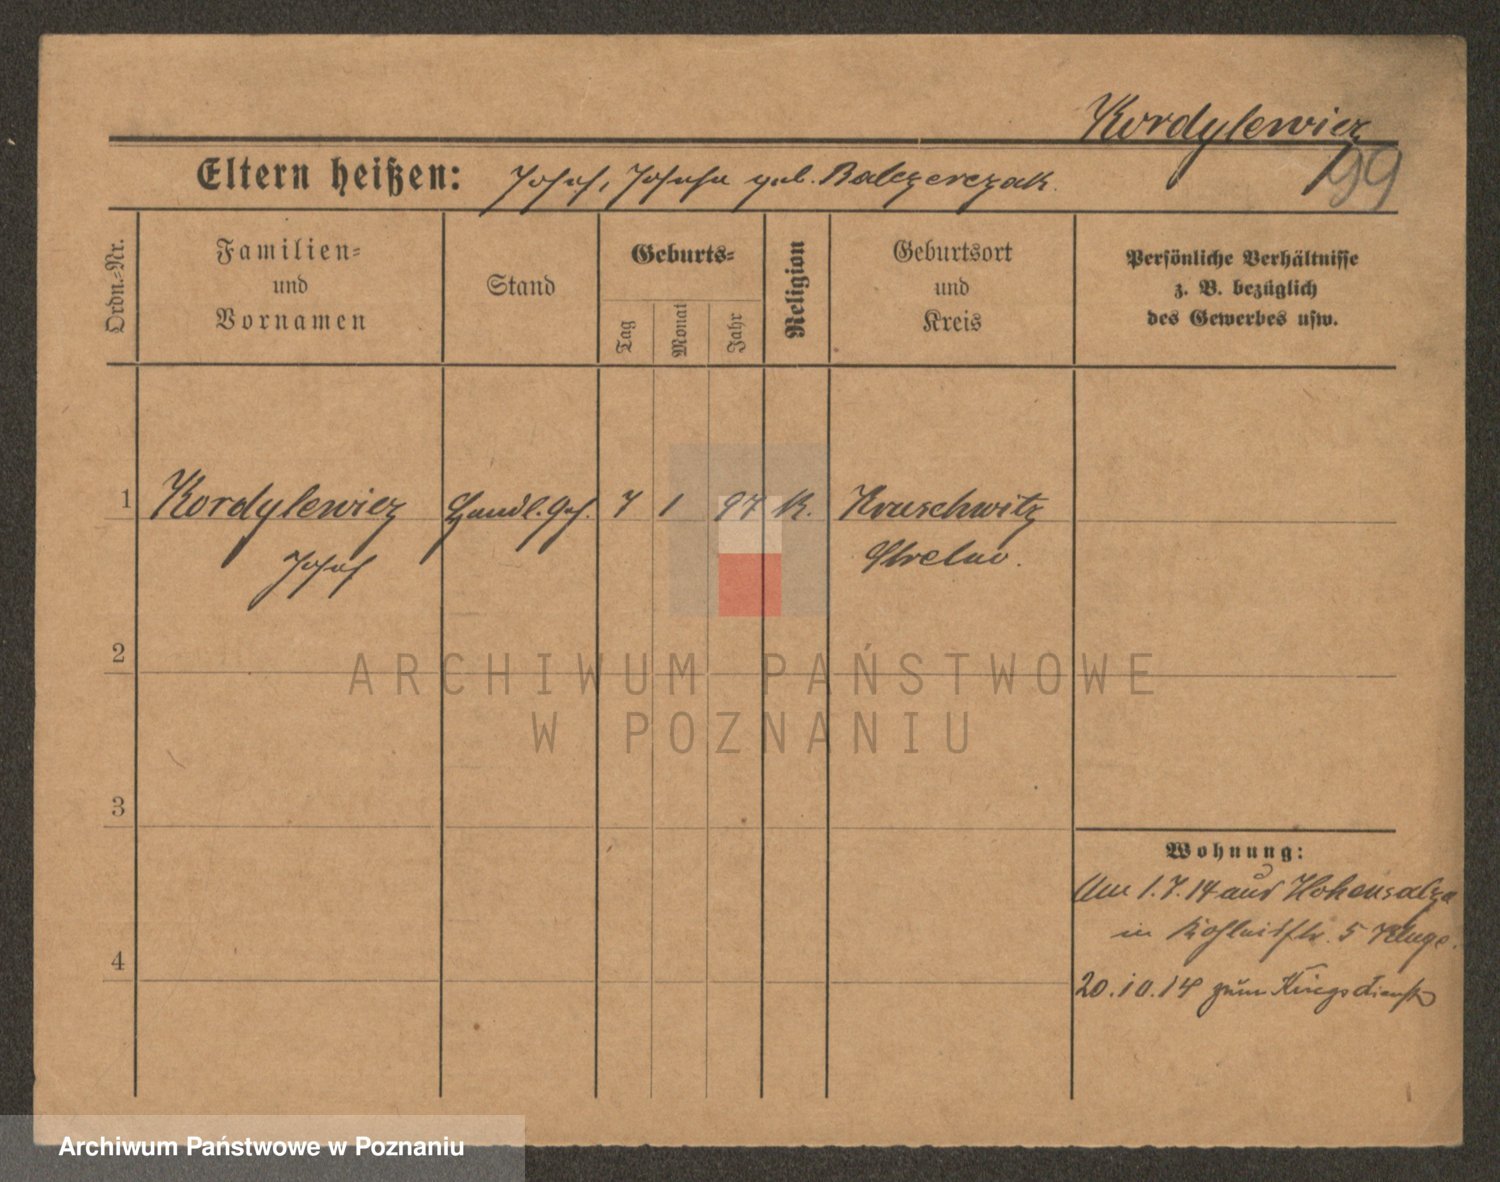 Kordylewicz
99
Eltern heißen: Josef, Josefa geb. Balczerczak.
Ordn.-Nr.
Familien-
und
Vornamen
Stand
Geburts-
Tag
Monat
Jahr
Religion
Geburtsort
und
Kreis
Persönliche Verhältnisse
z. B. bezüglich
des Gewerbes usw.
1 Kordylewicz Handl. Geh. 7 1 97 K. Kruschwitz
Josef Strelno.
2
ARCHIWUM PAŃSTWOWE
W POZNANIU
3
Wohnung:
Am 1.7.14 aus Hohensalza
in 5 Kluge.
4
20.10.14 zum Kriegsdienst
Archiwum Państwowe w Poznaniu